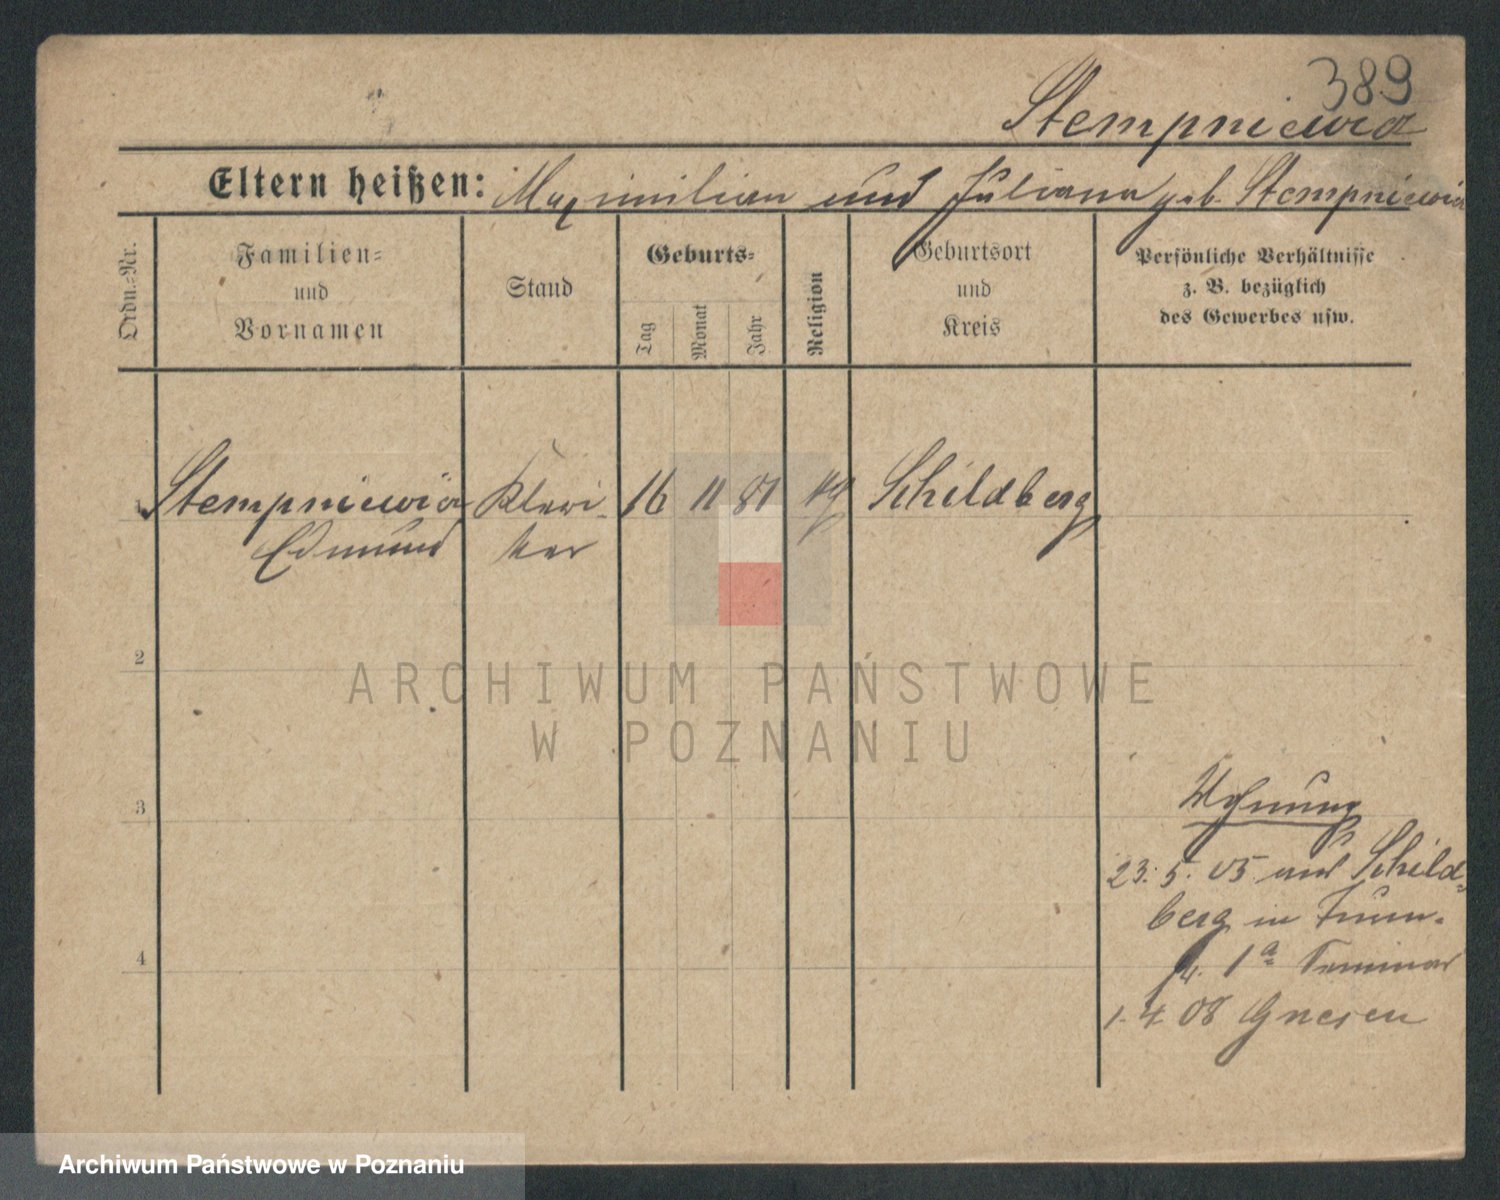 389
Stempniewicz
Eltern heißen: Maximilian und Juliana geb. Stempniewicz
Ordn.-Nr.
Familien-
und
Vornamen
Stand
Geburts-
Tag
Monat
Jahr
Religion
Geburtsort
und
Kreis
Persönliche Verhältnisse
z. B. bezüglich
des Gewerbes usw.
1 Stempniewicz Kleri- 16 11 81 Schildberg
Edmund ker
2
3
4
Wohnung
23. 5. 05 aus Schild-
berg in
4. 1a Seminar
1. 4 08 Gnesen
ARCHIWUM PAŃSTWOWE
W POZNANIU
Archiwum Państwowe w Poznaniu